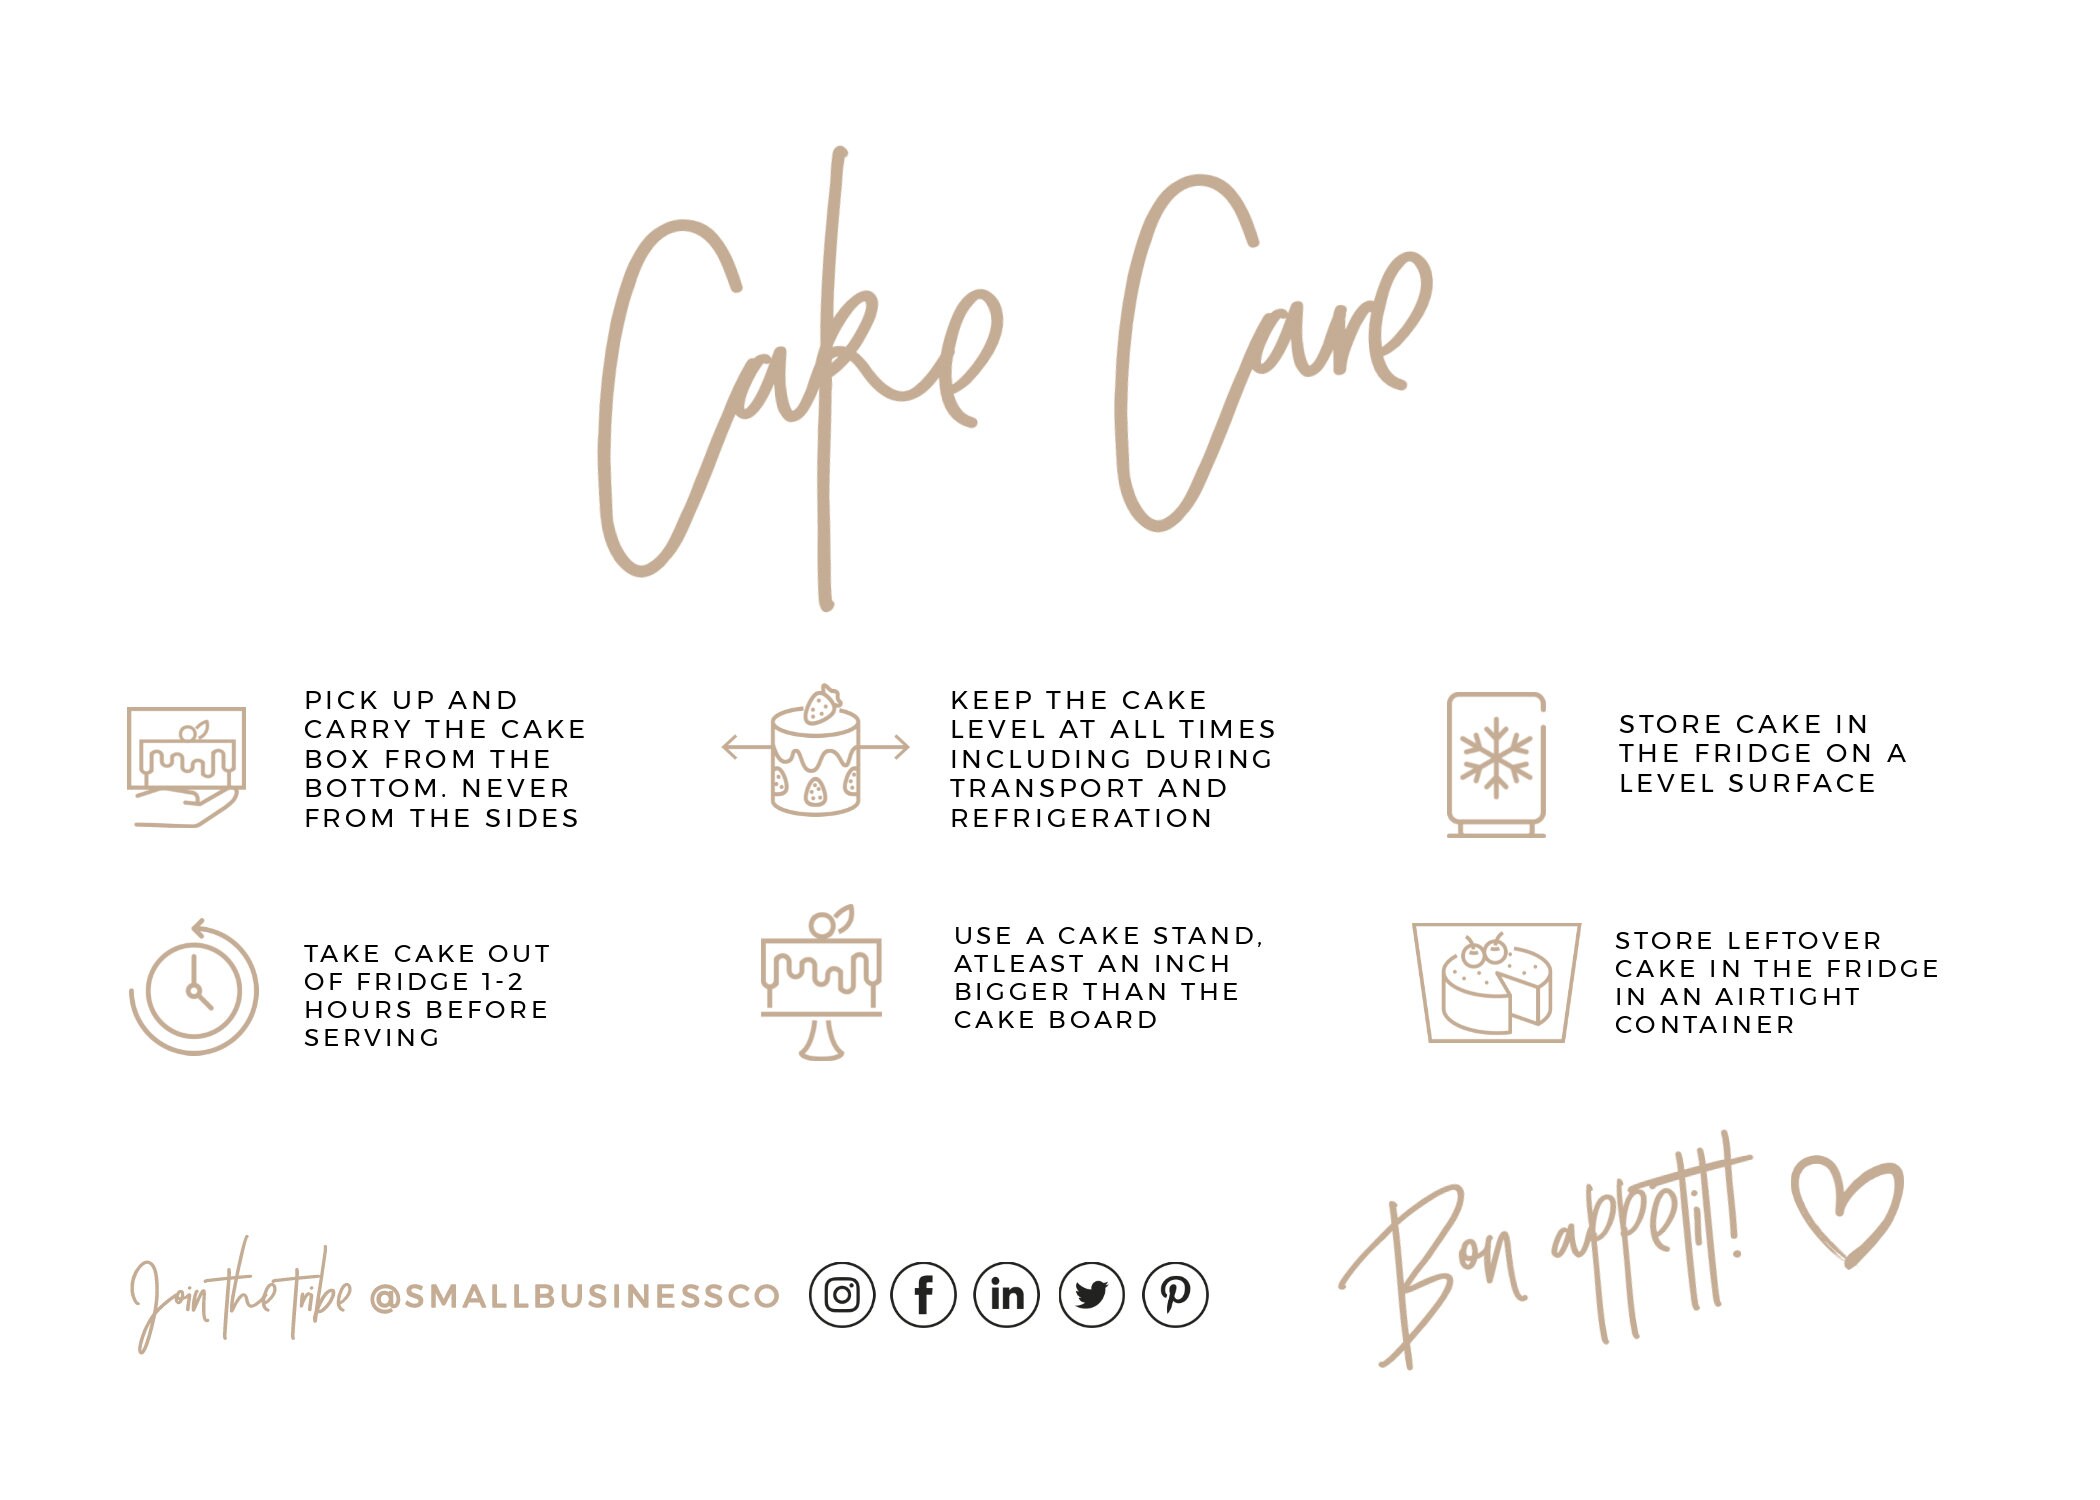 Cake Care
PICK UP AND
CARRY THE CAKE
BOX FROM THE
BOTTOM. NEVER
FROM THE SIDES
KEEP THE CAKE
LEVEL AT ALL TIMES
INCLUDING DURING
TRANSPORT AND
REFRIGERATION
STORE CAKE IN
THE FRIDGE ON A
LEVEL SURFACE
TAKE CAKE OUT
OF FRIDGE 1-2
HOURS BEFORE
SERVING
USE A CAKE STAND,
ATLEAST AN INCH
BIGGER THAN THE
CAKE BOARD
STORE LEFTOVER
CAKE IN THE FRIDGE
IN AN AIRTIGHT
CONTAINER
Join the tribe @SMALLBUSINESSCO
Bon appetit!